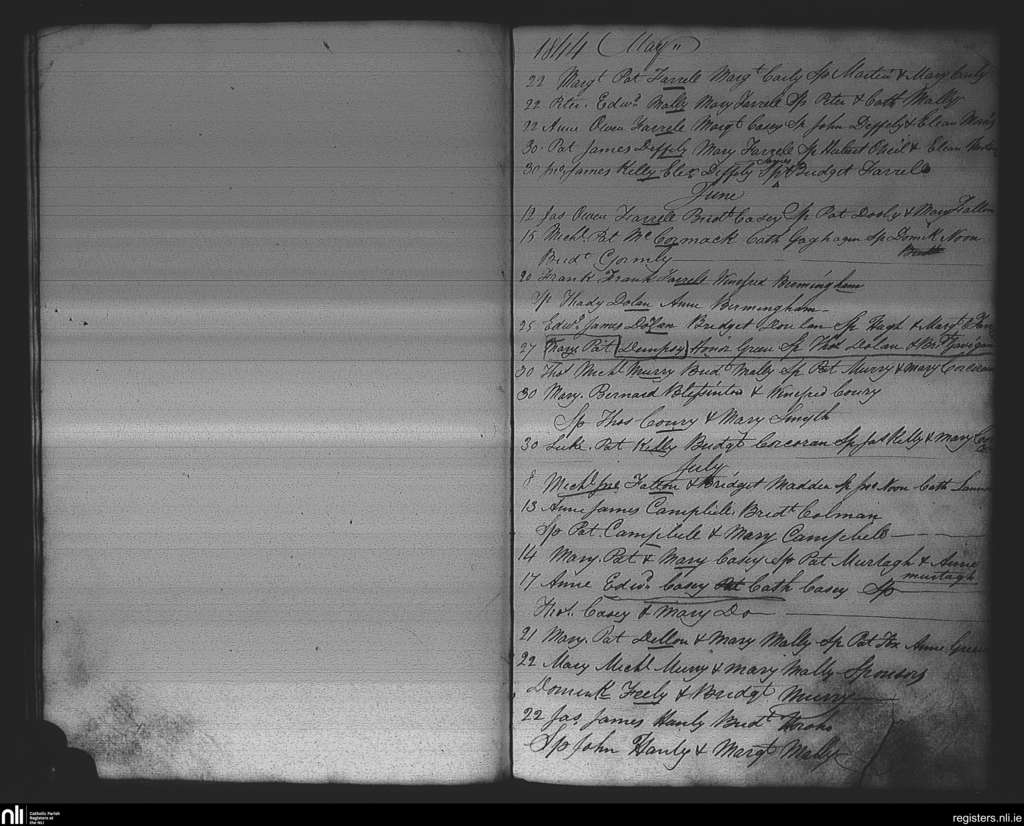 1844 (May)
22 Margt Pat Farrell Margt Carly Sp Martin & Mary Carly
22 Peter. Edwd Mally Mary Farrele Sp Peter & Cath Mally
22 Anne Owen Farrele Margt Casey Sp John Deffely & Elean
30 Pat James Deffely Mary Farrele Sp Hubert Oneil & Elean
30 Jno James Kelly Eliz Deffely Sp James & Bridget Farrele
June
12 Jas Owen Farrele Bridt Casey Sp Pat Dooly & Mary Fallon
15 Michl. Pat McCormack Cath Gaghagan Sp Domik Noon
Bridt Gormly
20 Frank Frank Farrele Winefred Bermingham
Sp Thady Dolan Anne Bermingham
25 Edwd James Dolan Bridget Sp Hugh & Margt
27 Mary Pat (Dempsy) Honor Green Sp Thos Dolan & Bridt Gavigan
30 Thos Michl Murry Bridt Mally Sp Pat Murry & Mary Corcoran
30 Mary. Bernard & Winefred Coury
Sp Thos Coury & Mary Smyth
30 Luke. Pat Kelly Bridgt Corcoran Sp Jas Kelly & Mary
July
8 Michl Jno Fallon & Bridget Madden Sp Jno Noon Cath
13 Anne James Campbele Bridt Colman
Sp Pat Campbele & Mary Campbele
14 Mary. Pat & Mary Casey Sp Pat Murtagh & Anne
murtagh
17 Anne Edwd Casey Cath Casey Sp
Thos. Casey & Mary Do
21 Mary. Pat Dillon & Mary Mally Sp Pat Fox Anne Green
22 Mary Michl Murry & Mary Mally Sponsors
Dominik Feely & Bridgt Murry
22 Jas James Hanly Bridt
Sp John Hanly & Margt Mally
nli
Catholic Parish
Registers at
the NLI
registers.nli.ie